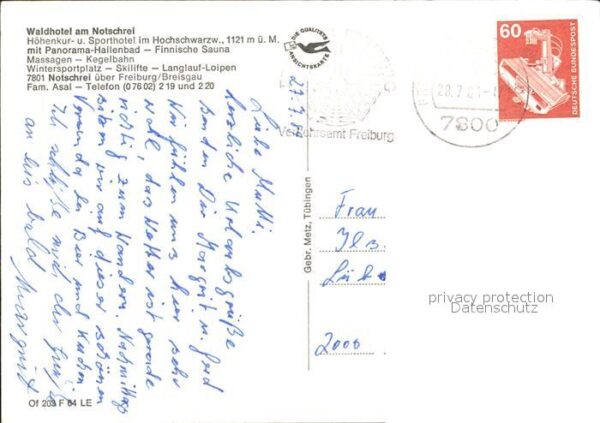 Waldhotel am Notschrei
Höhenkur- u. Sporthotel im Hochschwarzw., 1121 m ü. M.
mit Panorama-Hallenbad — Finnische Sauna
Massagen — Kegelbahn
Wintersportplatz — Skilifte — Langlauf-Loipen
7801 Notschrei über Freiburg/Breisgau
Fam. Asal — Telefon (0 76 02) 2 19 und 2 20
DIE QUALITÄTS
ANSICHTSKARTE
Verkehrsamt Freiburg
7800
60
DEUTSCHE BUNDESPOST
27.7.
Liebe Mutti.
herzliche Urlaubsgrüße
senden Dir Margrit u. Gerd
Wir fühlen uns hier sehr
wohl, das Wetter ist gerade
richtig zum Wandern. Nachmittags
sitzen wir auf dieser schönen
Veranda bei Bier und Kuchen
Ich schließe mit der
an bis bald
Margrit
Gebr. Metz, Tübingen
Frau
Ils
2000
privacy protection
Datenschutz
Of 203 F 64 LE